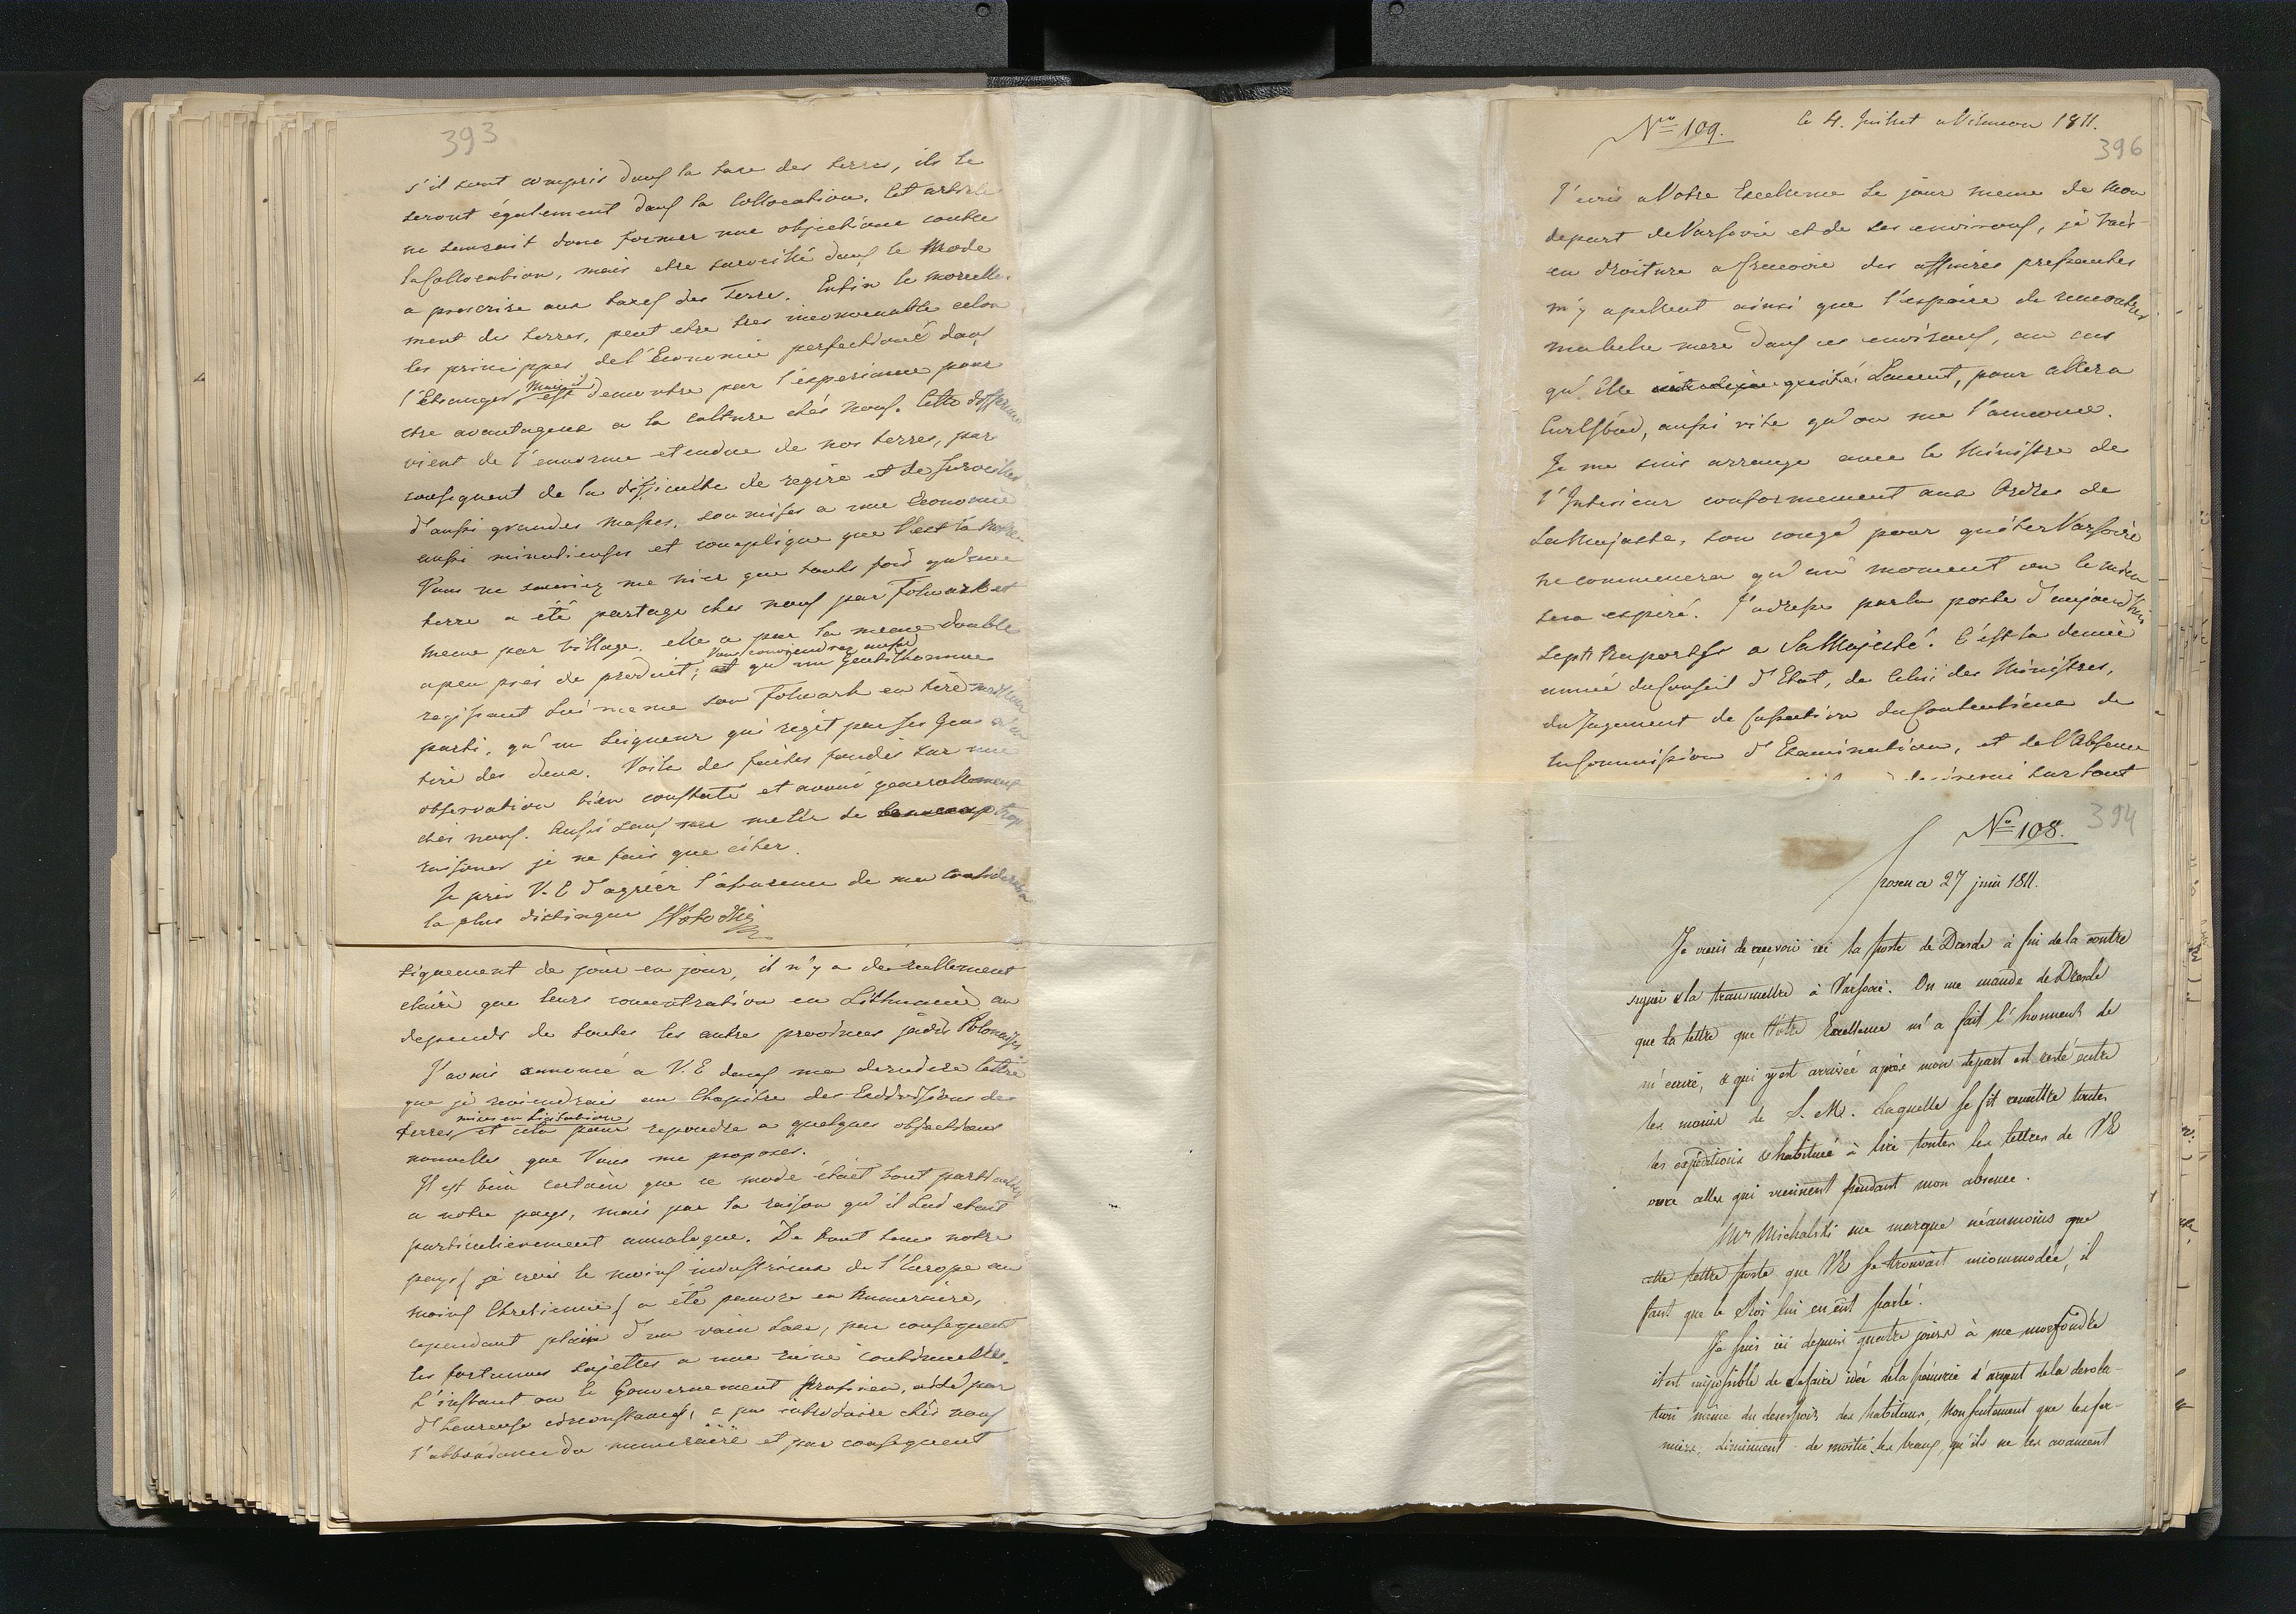 393
s'il sont compris dans la taxe des terres, ils le
seront également dans la Collocation. Cet article
ne sauroit donc former une objectione contre
la Collocation, mais etre surveillé dans le Mode
a prescrire aux taxes des Terre. Enfin le morcelle-
ment des terres, peut etre tres inconvenable selon
les princippes del'Economie perfectioné dans
l'Etranger, Mais il est demontre par l'experience pour
etre avantageux a la culture chés nous. Cette difference
vient de l'enorme etendue de nos terres, par
consequent de la difficulte de regire et de surveiller
d'aussi grandes Masses, soumises a une Economie
aussi minutieuses et compliqué que l'est la notre
Vous ne sauriez me nier que touts fois qu'une
terre a été partage ches nous par Folwark et
meme par village, elle a par la meme double
apeu prés de produit; Vous conviendrez aussi qu'un Gentilhomme
regissant lui meme son Folwark en tire meilleur
parti, qu'un Seigneur qui regit par ses Gens n'en
tire des deux. Voila des faites fondés sur une
observation bien constaté et avoué generallement
chés nous. Aussi sans me meler de beaucoup trop
raisoner je ne fais que citer.
Je prie V. E d'agréer l'assurence de ma consideration
la plus distingue
siquement de jour en jour, il n'y a de reellement
claire que leurs concentration en Lithuanie au
depends de toutes les autre provinces jadis Polonaises
J'avais annoncé a V.E dans ma derniere lettre
que je reviendrais au Chapitre des
terres mises en Licitation, et cela pour repondre a quelques objections
nouvelles que Vous me proposés.
Il est bien certain que ce mode étoit tout particulier
a notre pays, mais par la raison qu'il Lui etait
particulierement annalogue. De tout tems notre
pays (je crois le moins industrieux de l'Europe au
moins Chretienne) a été pauvre en Numeraire,
cependant plain d'un vain luxe, par consequent
les fortunes sujettes a une ruine continuelles.
L'instant ou le Gouvernement Prussien, aidé par
d'heureuse circonstances, a pu introduire chés nous
l'abbondance du numeraire et par consequent
Nro 109.
le 4. Juillet a Vilanow 1811.
396
J'ecris a Votre Excellence Le jour meme de Mon
depart de Varsovie et de ses environs, je vais
en droiture a Cracovie des affaires pressantes
m'y apellent ainsi que l'espoire de rencontrer
ma belle mere dans ces environs, au cas
qu'Elle quitté Lancut, pour aller a
Carlsbad, aussi vite qu'on me l'annonce.
Je me suis arrangé avec le Ministre de
l'Interieur conformement aux Ordres de
Sa Majeste, son congé pour quiter Varsovie
ne commencera qu'au moment ou le mien
sera expiré. J'adresse par la poste d'aujourd'hui
Sept Raports a Sa Majesté. C'est la
du Conseil d'Etat, de Celui des Ministres,
du Jugement de Cassation du Contentieux de
la Commission d'Examination, et de l'Absence
surtout
No 108.
394
Posen ce 27 juin 1811.
Je viens de recevoir ici la poste de Dresde à fin de la contre
signer & la transmettre à Varsovie. On me mande de Dresde
que la lettre que Votre Excellence m'a fait l'honneur de
m'ecrire, & qui y est arrivée après mon depart est resté entre
les mains de S. M. Laquelle se fit remettre toutes
les expéditions & habitué à lire toutes les lettres de VE
ouvre celles qui viennent pendant mon absence.
Mr Michalski me marque néanmoins que
cette lettre porte que VE se trouvait incommodée, il
faut que le Roi lui en eût parlé.
Je suis ici depuis quatre jours à me morfondre
il est impossible de se faire idée de la pénurie d'argent de la desola-
tion même du desespoir des habitans, Non seulement que les fer-
miers diminuent de moitié les baux, qu'ils ne les avancent